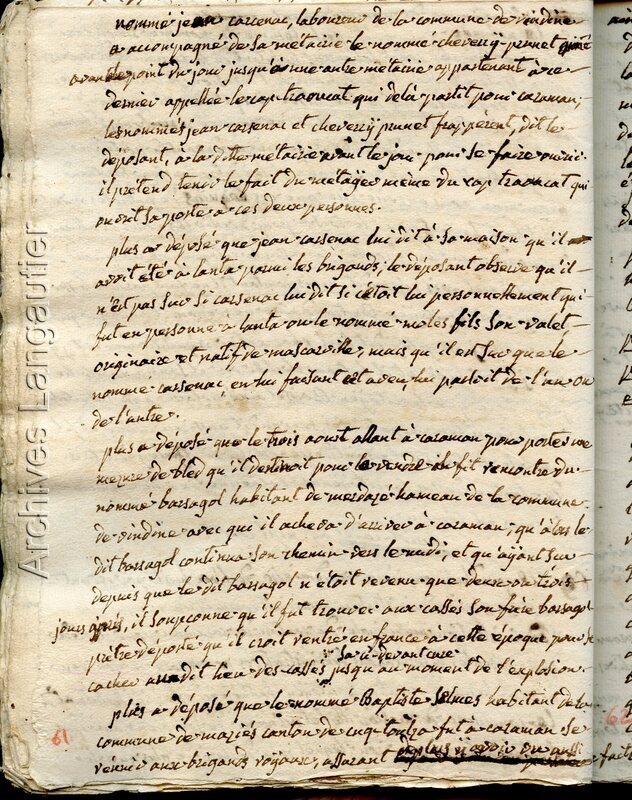 nommé jean carcenac, laboureur de la commune de vindine
a accompagné de sa métairie le nommé cheverry prunet
avant le point du jour jusqu'à une autre métairie appartenant à ce
dernier appellée le cap traoucat qui de là partit pour caraman,
les nommés jean carsenac et cheverry prunet frappèrent, dit le
déposant, à la ditte métairie avant le jour pour se faire ouvrir
il prétend tenir le fait du métayer même du cap traoucat qui
ouvrit sa porte à ces deux personnes.
plus a déposé que jean carsenac lui dit à sa maison qu'il
avoit été à lanta parmi les brigands, le déposant observe qu'il
n'est pas sur si carsenac lui dit si c'etoit lui personnellement qui
fut en personne a lanta ou le nommé moles fils son valet
originaire et natif de mascarville, mais qu'il est sur que le
nommé carsenac, en lui faisant cet aveu, lui parloit de l'un ou
de l'autre.
plus a déposé que le trois aoust allant à caraman pour porter une
mezure de bled qu'il destinoit pour le vendre il fit rencontre du
nommé barsagol habitant de hameau de la commune
de vindine avec qui il acheva d'arriver à caraman, qu'alors le
dit barsagol continua son chemin vers le midi, et qu'ayant su
depuis que le dit barsagol n'étoit revenu que deux ou trois
jours après, il soupçonne qu'il fut trouver aux cassés son frère barsagol
prêtre déporté qu'il croit rentré en france à cette époque pour se
cacher au dit lieu des cassés sa ci-devant cure jusqu'au moment de l'explosion.
plus a déposé que le nommé Baptiste Selmes habitant de la
commune de mariès canton de fut à caraman se
réunir aux brigands royaux, assurant
61
62
Archives Langautier